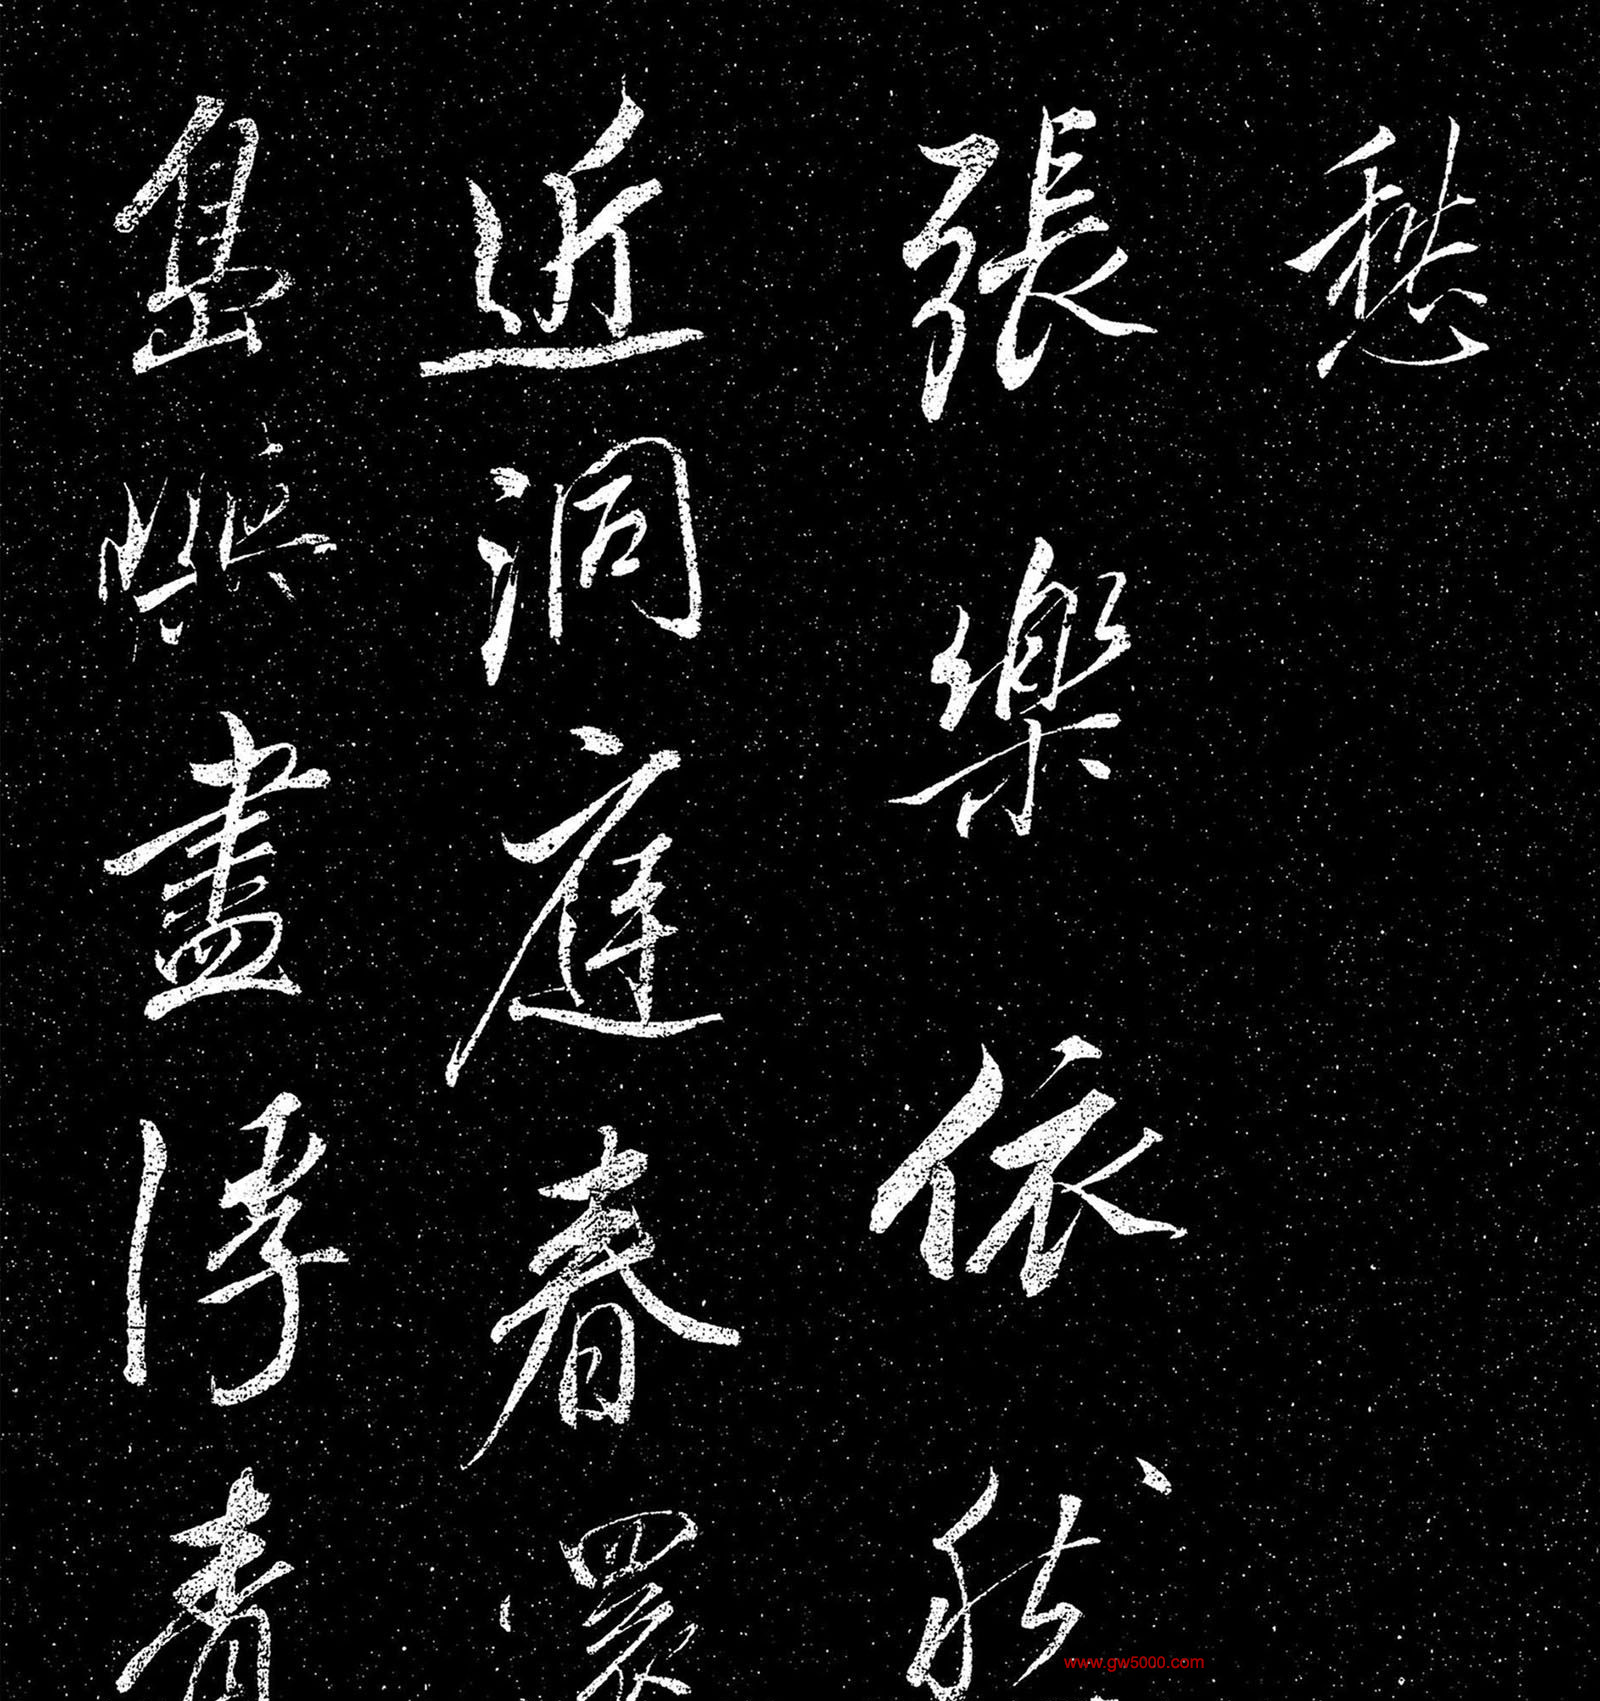 愁
張樂依然
近洞庭春還
島嶼盡浮青
www.gw5000.com